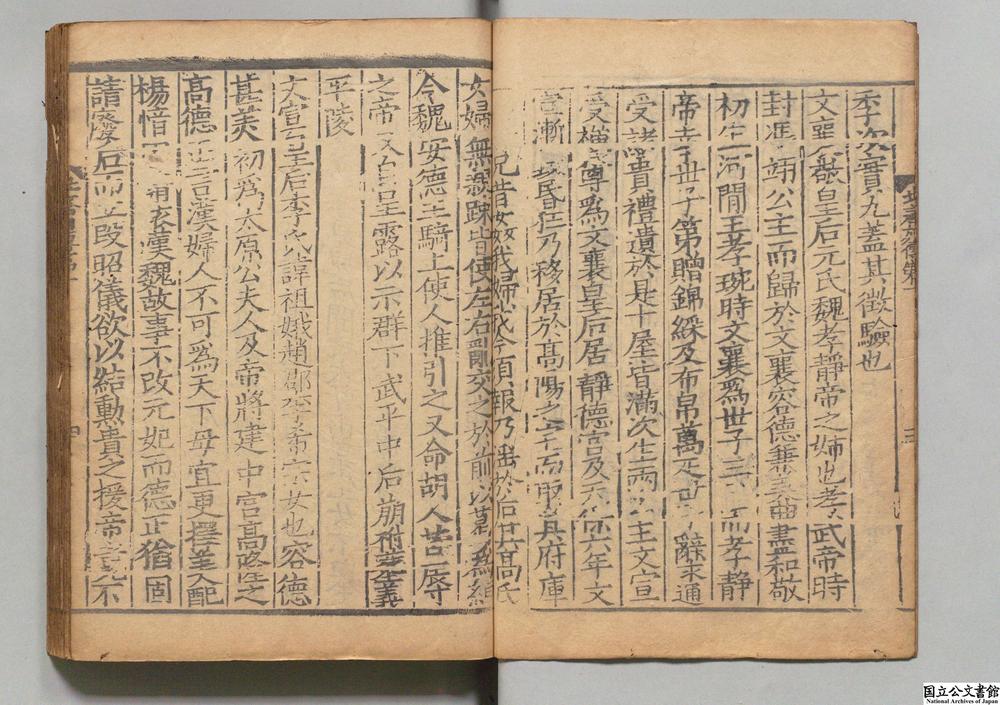 季次實九蓋其徵驗也
文襄敬皇后元氏魏孝靜帝之姉也孝武帝時
封馮翊公主而歸於文襄容德兼美曲盡和敬
初生河間王孝琬時文襄爲世子三 而孝靜
帝幸世子第贈錦綵及布帛萬疋 辭求通
受諸貴禮遺於是十屋皆滿次生兩 主文宣
受禪尊爲文襄皇后居靜德宮及天保六年文
宣漸 昏狂乃移居於髙陽之宅而取其府庫
兄昔姧我婦我今須報乃淫於后其髙氏
女婦無親踈皆使左右亂交之於前以葛爲絙
令魏安德主騎上使人推引之又命胡人苦辱
之帝又自呈露以示群下武平中后崩祔葬義
平陵
文宣皇后李氏諱祖娥趙郡李希宗女也容德
甚美初爲太原公夫人及帝將建中宫髙隆之
髙德正言漢婦人不可爲天下母宜更擇美配
楊愔 請依漢魏故事不改元妃而德正猶固
請廢后而立段昭儀欲以結勳貴之援帝竟不
国立公文書館
National Archives of Japan